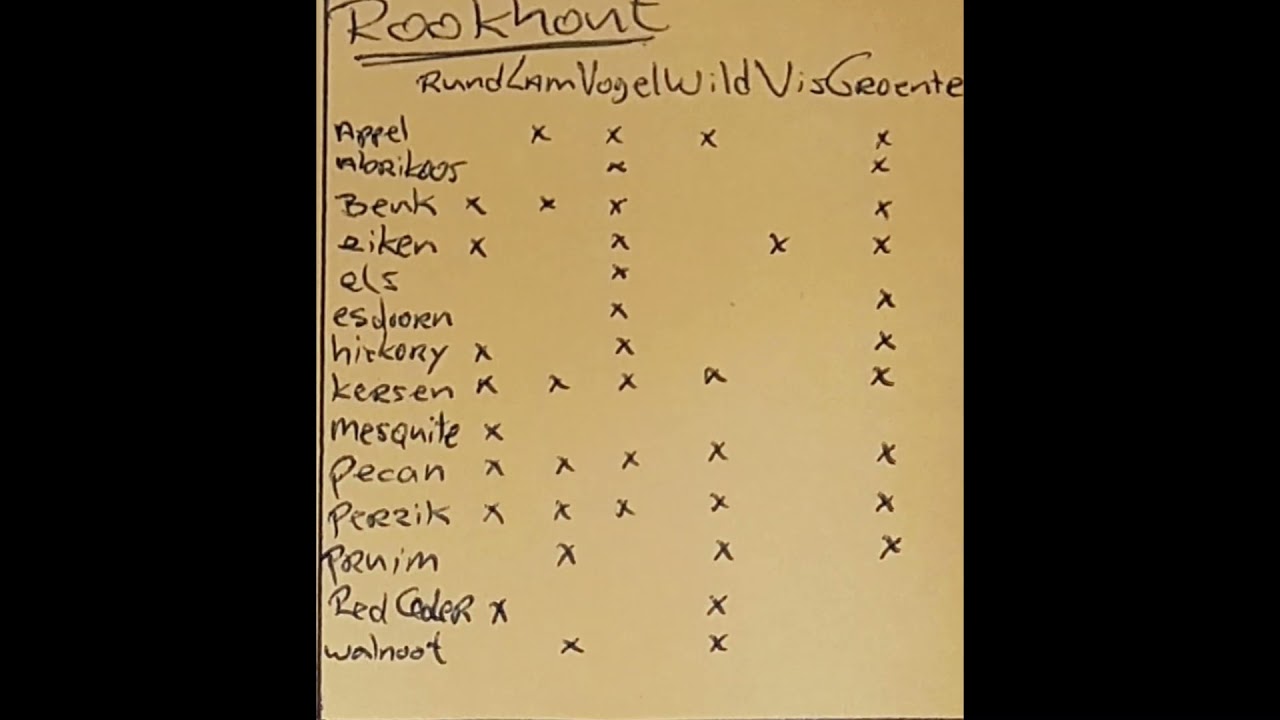 Rookhout
Rund Lam Vogel Wild Vis Groente
Appel x x x x
Abrikoos x x
Beuk x x x x
eiken x x x x
els x
esdoorn x x
hickory x x x
kersen x x x x x
mesquite x
pecan x x x x x
perzik x x x x x
pruim x x x
Red Ceder x x
walnoot x x